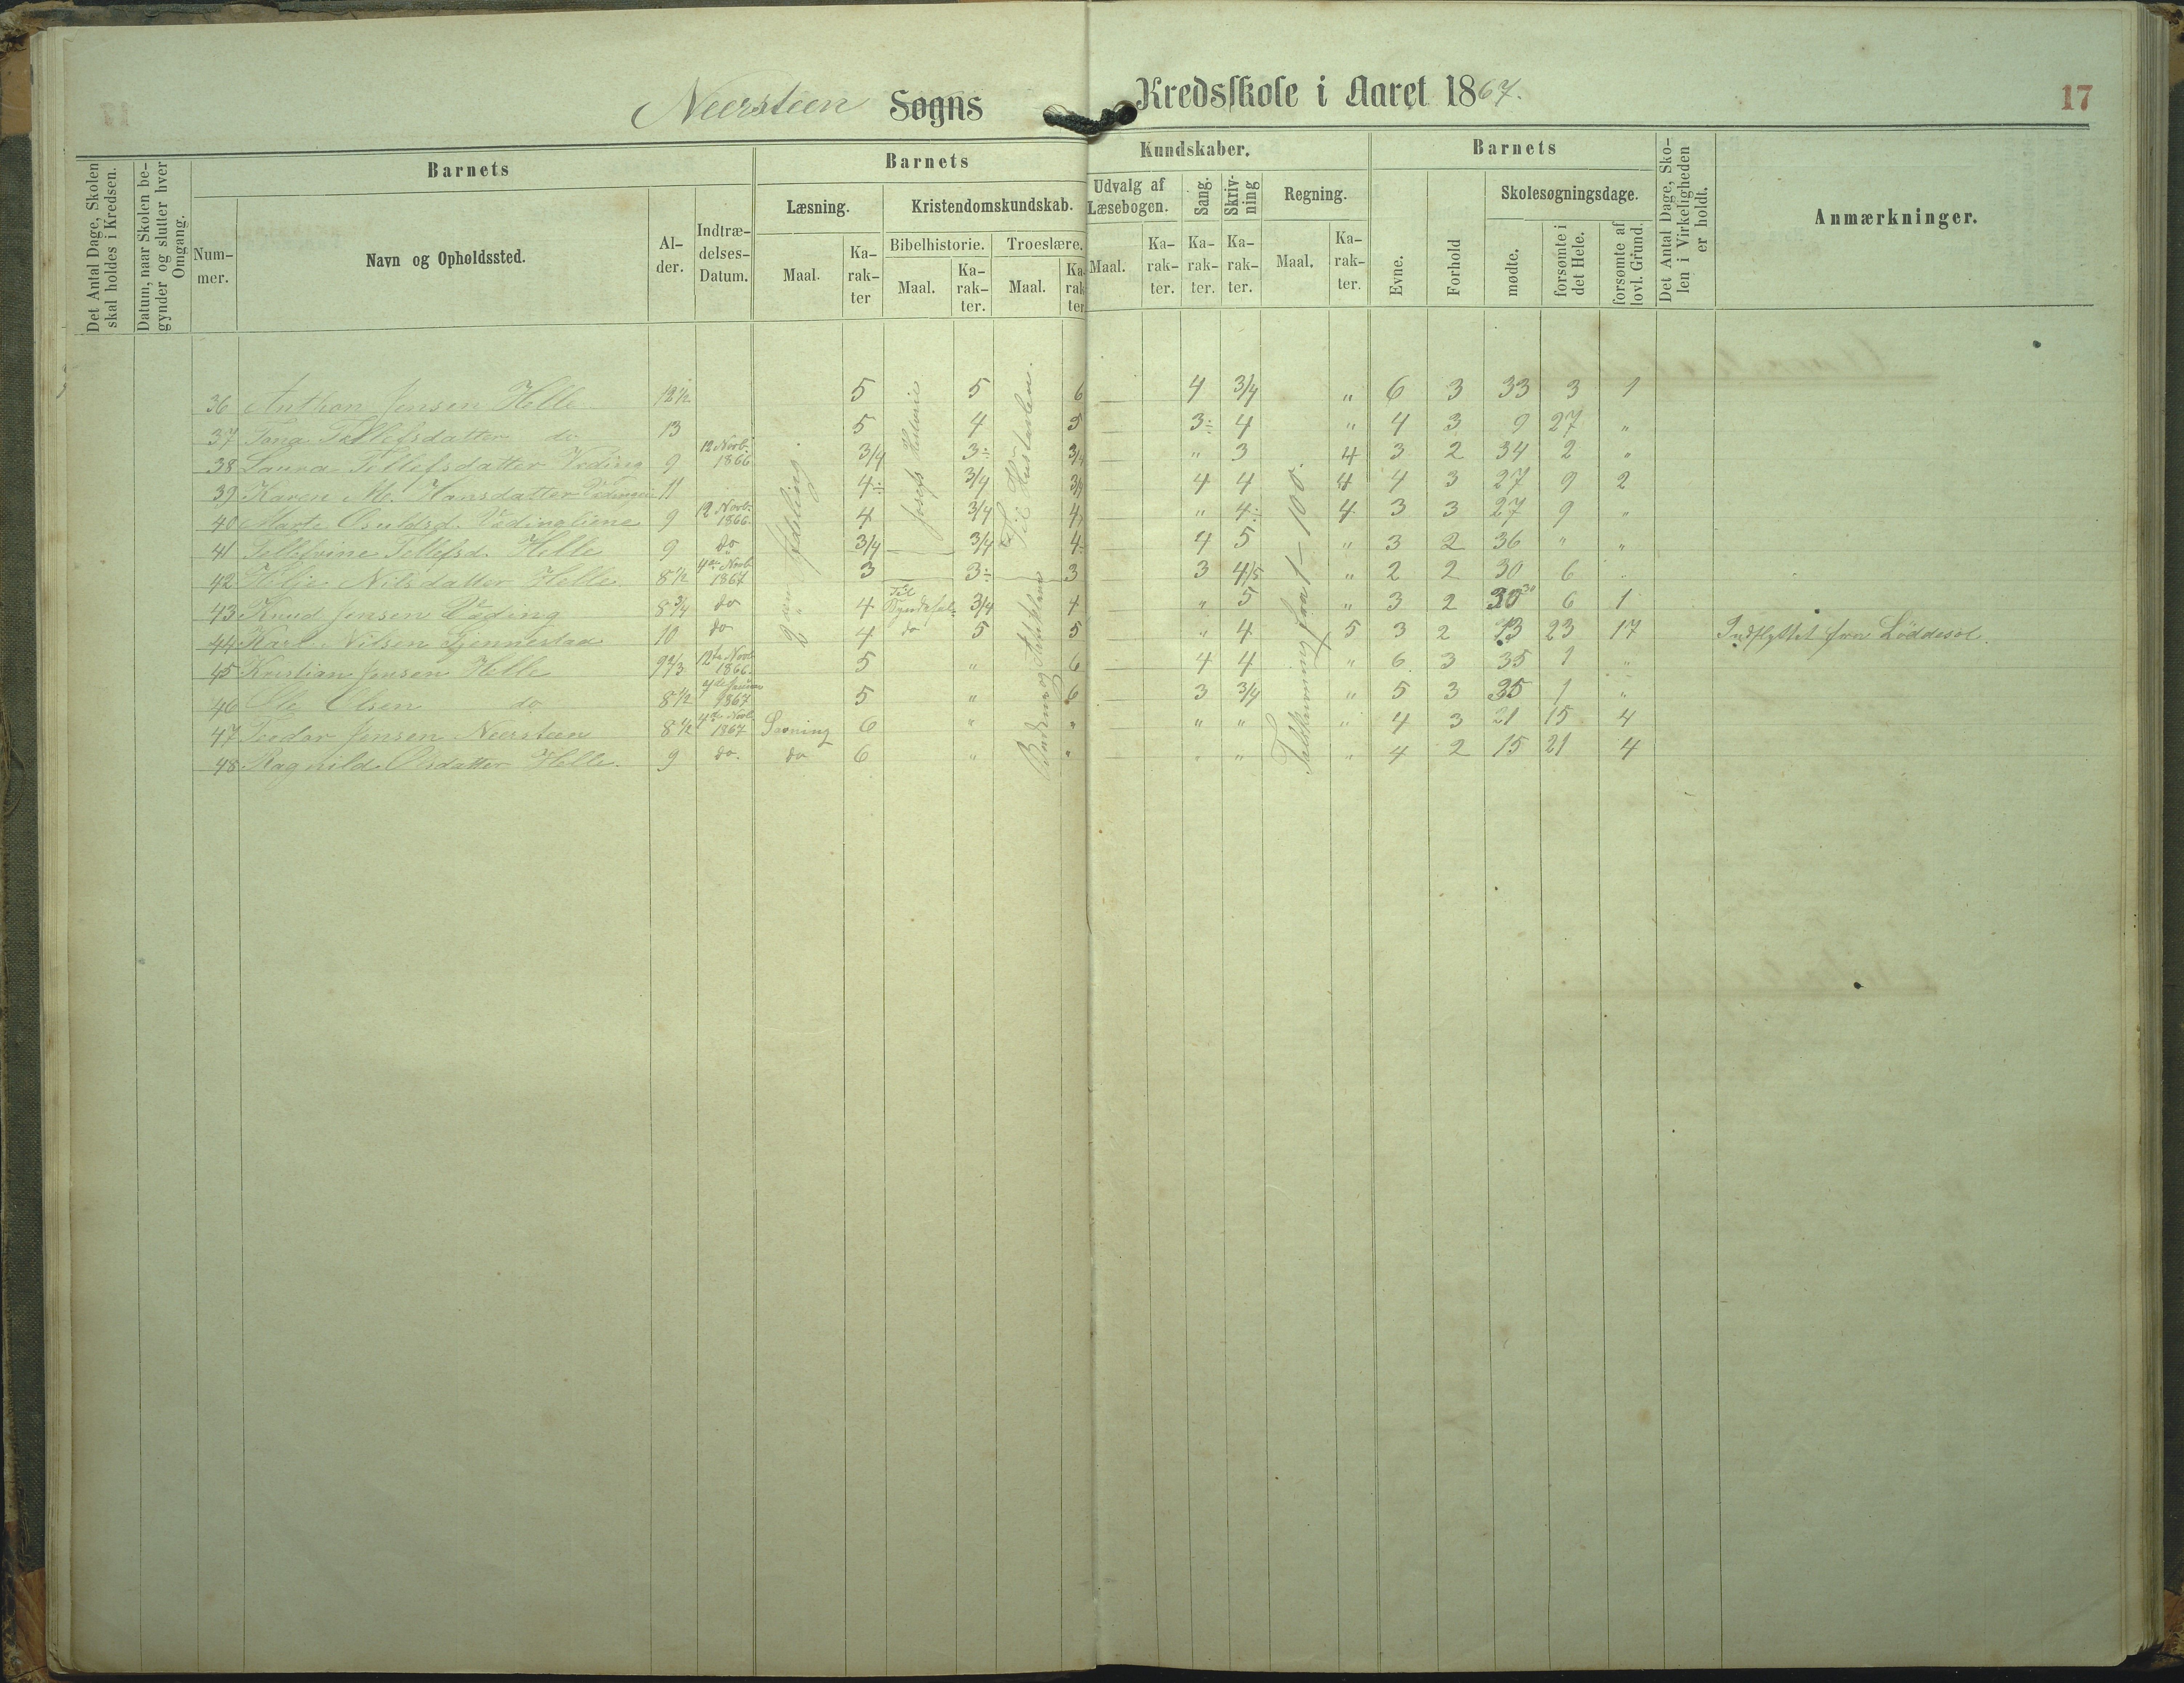 Neersteen Sogns Kredsskole i Aaret 1867. 17
Det Antal Dage, Skolen skal holdes i Kredsen.
Datum, naar Skolen begynder og slutter hver Omgang.
Barnets
Nummer.
Navn og Opholdssted.
Alder.
Indtrædelses-Datum.
Barnets Kundskaber.
Læsning.
Maal. Karakter
Kristendomskundskab.
Bibelhistorie. Troeslære.
Maal. Karakter. Maal. Karakter
Udvalg af Læsebogen.
Maal. Karakter.
Sang. Karakter.
Skrivning Karakter.
Regning.
Maal. Karakter.
Barnets
Evne. Forhold
Skolesøgningsdage.
mødte. forsømte i det Hele. forsømte af lovl. Grund.
Det Antal Dage, Skolen i Virkeligheden er holdt.
Anmærkninger.
36 Anthon Jensen Helle 12 1/2 5 5 6 4 3/4 " 6 3 33 3 1
37 Tona Tellefsdatter do 13 5 4 5 3÷ 4 " 4 3 9 27 "
38 Laura Tellefsdatter Veding 9 12 Novb. 1866 3/4 3÷ 3/4 " 3 4 3 2 34 2 "
39 Karen M. Hansdatter 11 4÷ 3/4 3/4 4 4 4 4 3 27 9 2
40 Marte Osuldsd. Vedingtiene 9 12 Novb. 1866 4 3/4 4 " 4÷ 4 3 3 27 9 "
41 Tellefvine Tellefsd. Helle 9 do 3/4 3/4 4 4 5 " 3 2 36 " "
42 Helje Nilsdatter Helle 8 1/2 4de Novb 1867 3 3÷ 3 3 4/5 " 2 2 30 6
43 Knud Jensen Veding 8 3/4 do 4 Til Syndefal 3/4 4 " 5 " 3 2 30 6 1
44 Karl Nilsen Gjennestad 10 do 4 do 5 5 " 4 5 3 2 13 23 17 Indflyttet fra Løddesøl.
45 Kristian Jensen Helle 9 2/3 12te Novb 1866. 5 " 6 4 4 " 6 3 35 1 "
46 Ole Olsen do 8 1/2 7de Januar 1867 5 " 6 3 3/4 " 5 3 35 1 "
47 Teodor Jensen Neersteen 8 1/2 4de Novb 1867 Stavning 6 " " " " " 4 3 21 15 4
48 Ragnild Olsdatter Helle. 9 do. do 6 " " " " " 4 2 15 21 4
Josefs Historie
Til Hustavlen.